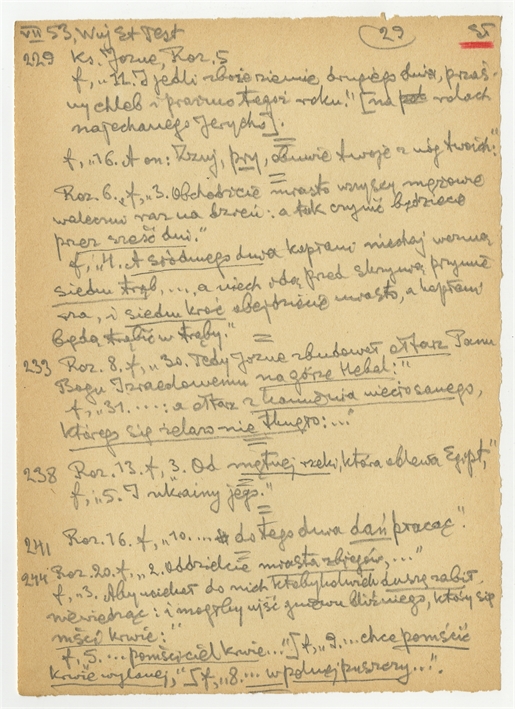 VII 53, Wuj St Test 29 ST
229 Ks. Jozue, Roz. 5
f, „11. I jedli zboże ziemie, drugiego dnia, przaś-
ny chleb i prażmo tegoż roku." [na rolach
najechanego Jerycha].
f, „16. A on: Zzuj, pry, obuwie twoje z nóg twoich:"
Roz. 6. f, „3. Obchodźcie miasto wszyscy mężowie
waleczni raz na dzień: a tak czynić będziecie
przez sześć dni."
f, „4. A siódmego dnia kapłani niechaj wezmą
siedm trąb..., a niech idą przed skrzynią przymie-
rza, i siedm kroć obejdziecie miasto, a kapłani
będą trąbić w trąby."
233 Roz. 8. f, „30. Tedy Jozue zbudował ołtarz Panu
Bogu Izraelowemu na górze Hebal:"
f, „31. ....: a ołtarz z kamienia nieciosanego,
którego się żelazo nie tknęło:..."
238 Roz. 13. f, 3. Od mętnej rzeki, która oblewa Egipt,"
f, „5. I ukrainy jego."
241 Roz. 16. f, „10. ... do tego dnia dań płacąc".
244 Roz. 20. f, „2. Oddzielcie miasta zbiegów,..."
f, „3. Aby uciekał do nich ktobykolwiek duszę zabił
niewiedząc: i mogłby ujść gniewu bliźniego, który się
mści krwie:"
f, 5. ... pomściciel krwie..." ∫ f, „9. ... chce pomścić
krwie wylanej," ∫ f, „8. ... w polnej puszczy...".